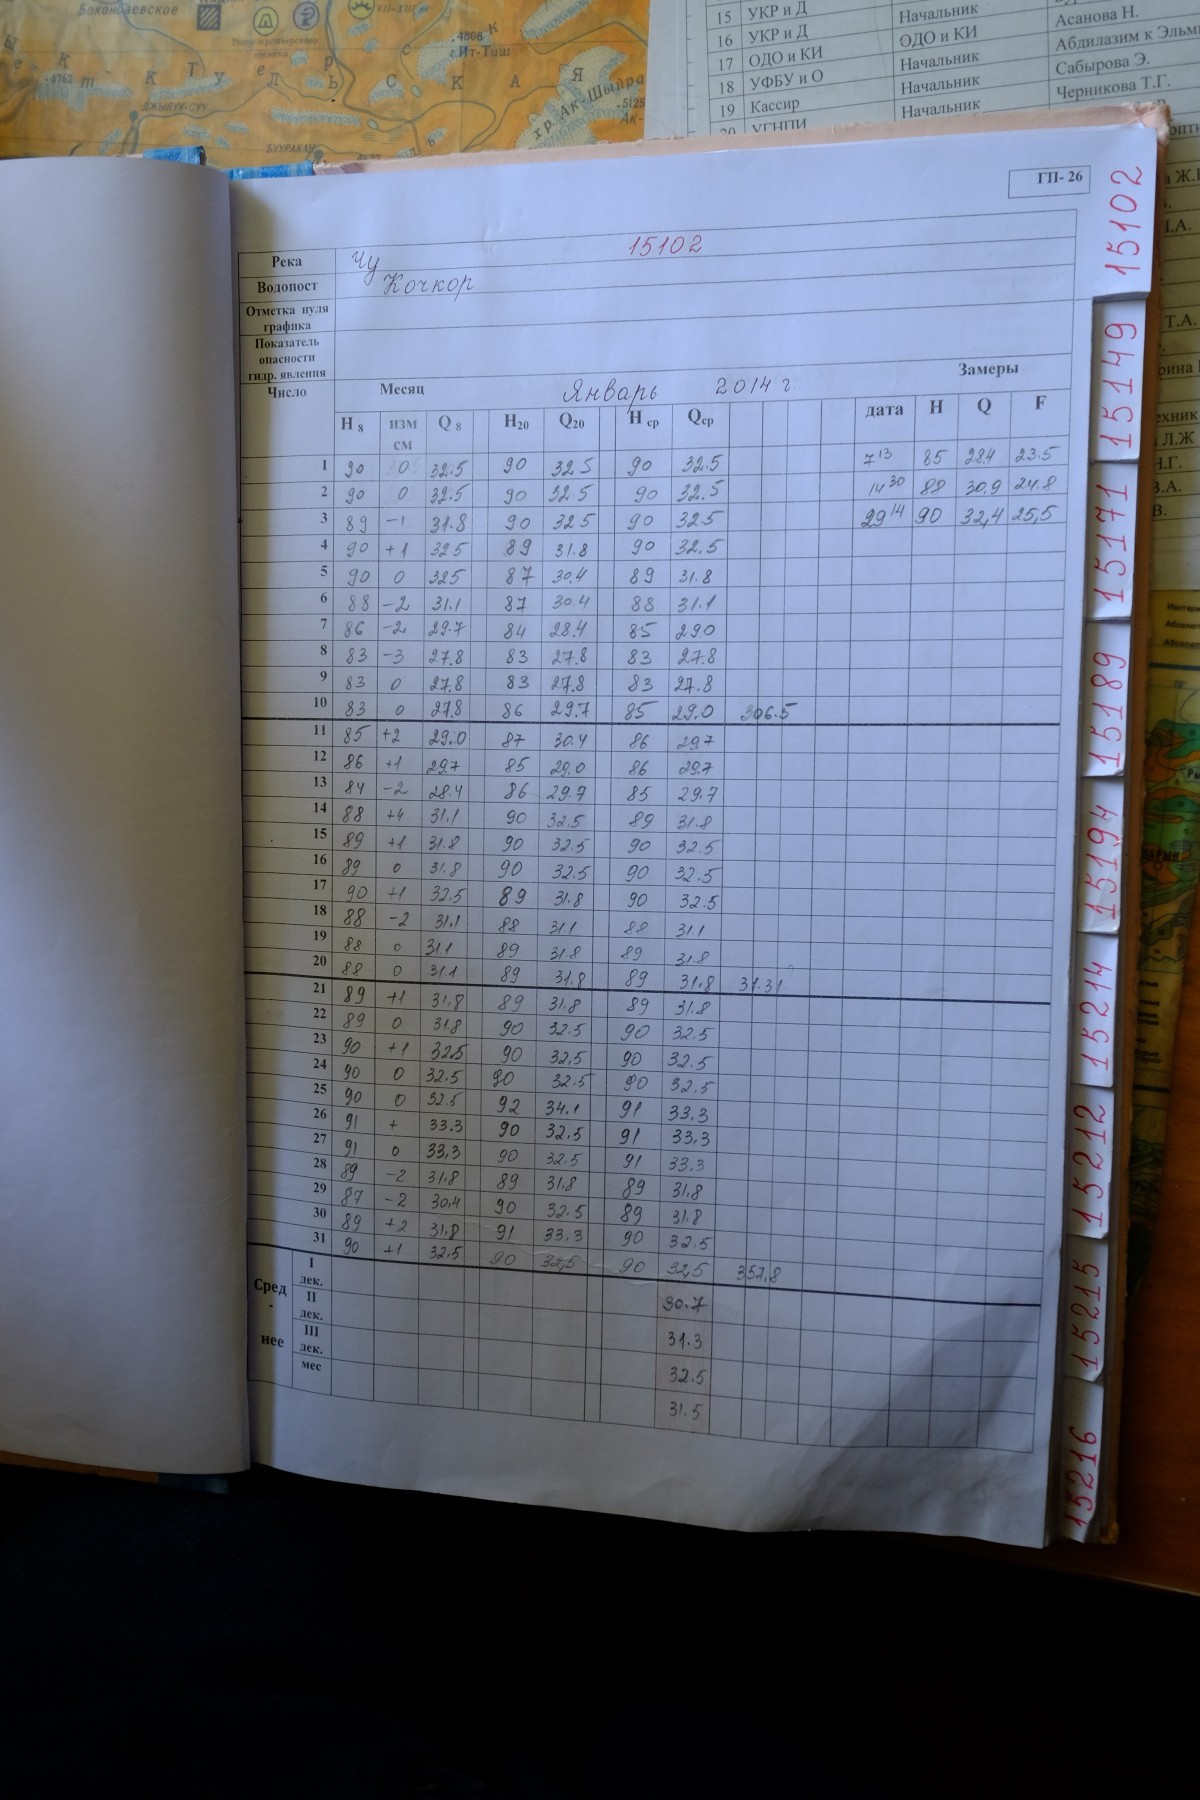 Боконбаевское
VII-XIII
4808
г.Ит-Тиш
С К А Я
4762
ДЖЫЛУУ-СУУ
хр. Ак-Шыйрак
5125
БУУРАКАН
15 УКР и Д Начальник Асанова Н.
16 УКР и Д ОДО и КИ Абдилазим к Эльм
17 ОДО и КИ Начальник Сабырова Э.
18 УФБУ и О Начальник Черникова Т.Г.
19 Кассир Начальник
20 УГНПИ
ГП- 26
15102
Река Чу
Водопост Кочкор
Отметка нуля графика
Показатель опасности гидр. явления
Число Месяц Январь 2014 г Замеры
H 8 изм см Q 8 H20 Q20 H ср Qср дата H Q F
1 90 0 32.5 90 32.5 90 32.5 7 13 85 28.4 23.5
2 90 0 32.5 90 32.5 90 32.5 14 30 88 30.9 24.8
3 89 -1 31.8 90 32.5 90 32.5 29 14 90 32,4 25,5
4 90 +1 32.5 89 31.8 90 32.5
5 90 0 32.5 87 30.4 89 31.8
6 88 -2 31.1 87 30.4 88 31.1
7 86 -2 29.7 84 28.4 85 29.0
8 83 -3 27.8 83 27.8 83 27.8
9 83 0 27.8 83 27.8 83 27.8
10 83 0 27.8 86 29.7 85 29.0 306.5
11 85 +2 29.0 87 30.4 86 29.7
12 86 +1 29.7 85 29.0 86 29.7
13 84 -2 28.4 86 29.7 85 29.7
14 88 +4 31.1 90 32.5 89 31.8
15 89 +1 31.8 90 32.5 90 32.5
16 89 0 31.8 90 32.5 90 32.5
17 90 +1 32.5 89 31.8 90 32.5
18 88 -2 31.1 88 31.1 88 31.1
19 88 0 31.1 89 31.8 89 31.8
20 88 0 31.1 89 31.8 89 31.8 31.31
21 89 +1 31.8 89 31.8 89 31.8
22 89 0 31.8 90 32.5 90 32.5
23 90 +1 32.5 90 32,5 90 32.5
24 90 0 32.5 90 32.5 90 32.5
25 90 0 32.5 92 34.1 91 33.3
26 91 + 33.3 90 32.5 91 33,3
27 91 0 33,3 90 32.5 91 33.3
28 89 -2 31.8 89 31.8 89 31.8
29 87 -2 30.4 90 32.5 89 31.8
30 89 +2 31.8 91 33.3 90 32.5
31 90 +1 32.5 90 32,5 90 32,5 357,8
Сред-нее
I дек. 30.7
II дек. 31.3
III дек. 32.5
мес 31.5
15102
15149
15171
15189
15194
15214
15212
15215
15216